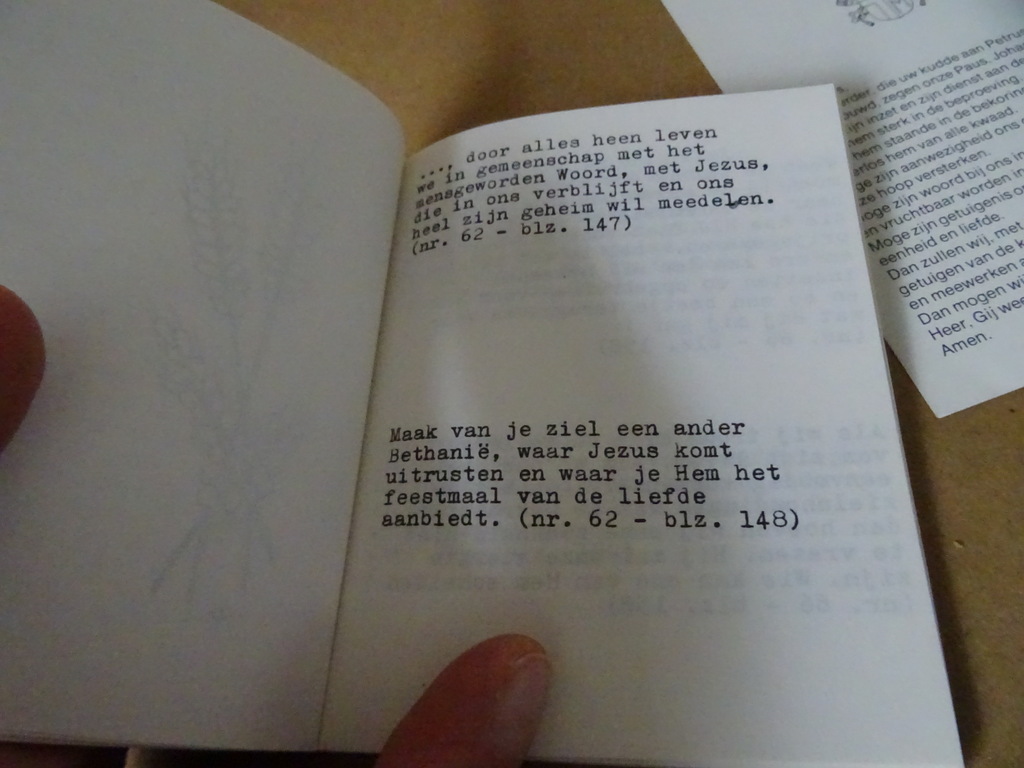 ..., door alles heen leven
we in gemeenschap met het
mensgeworden Woord, met Jezus,
die in ons verblijft en ons
heel zijn geheim wil meedelen.
(nr. 62 - blz. 147)
Maak van je ziel een ander
Bethanië, waar Jezus komt
uitrusten en waar je Hem het
feestmaal van de liefde
aanbiedt. (nr. 62 - blz. 148)
die uw kudde aan Petrus
zegen onze Paus, Joha
inzet en zijn dienst aan de
hem sterk in de beproeving
hem staande in de bekoring
hem van alle kwaad.
zijn aanwezigheid ons
hoop versterken.
zijn woord bij ons in
vruchtbaar worden in
Moge zijn getuigenis
eenheid en liefde.
Dan zullen wij, met
getuigen van de
en meewerken
Dan mogen
Heer, Gij
Amen.